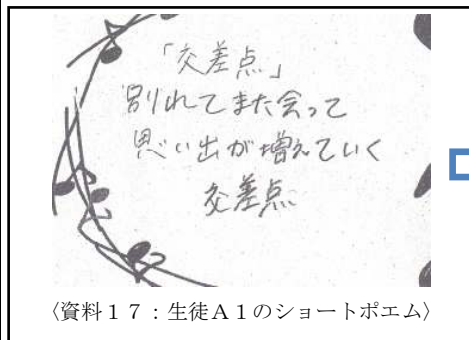 「交差点」
別れてまた会って
思い出が増えていく
交差点
〈資料１７：生徒Ａ１のショートポエム〉